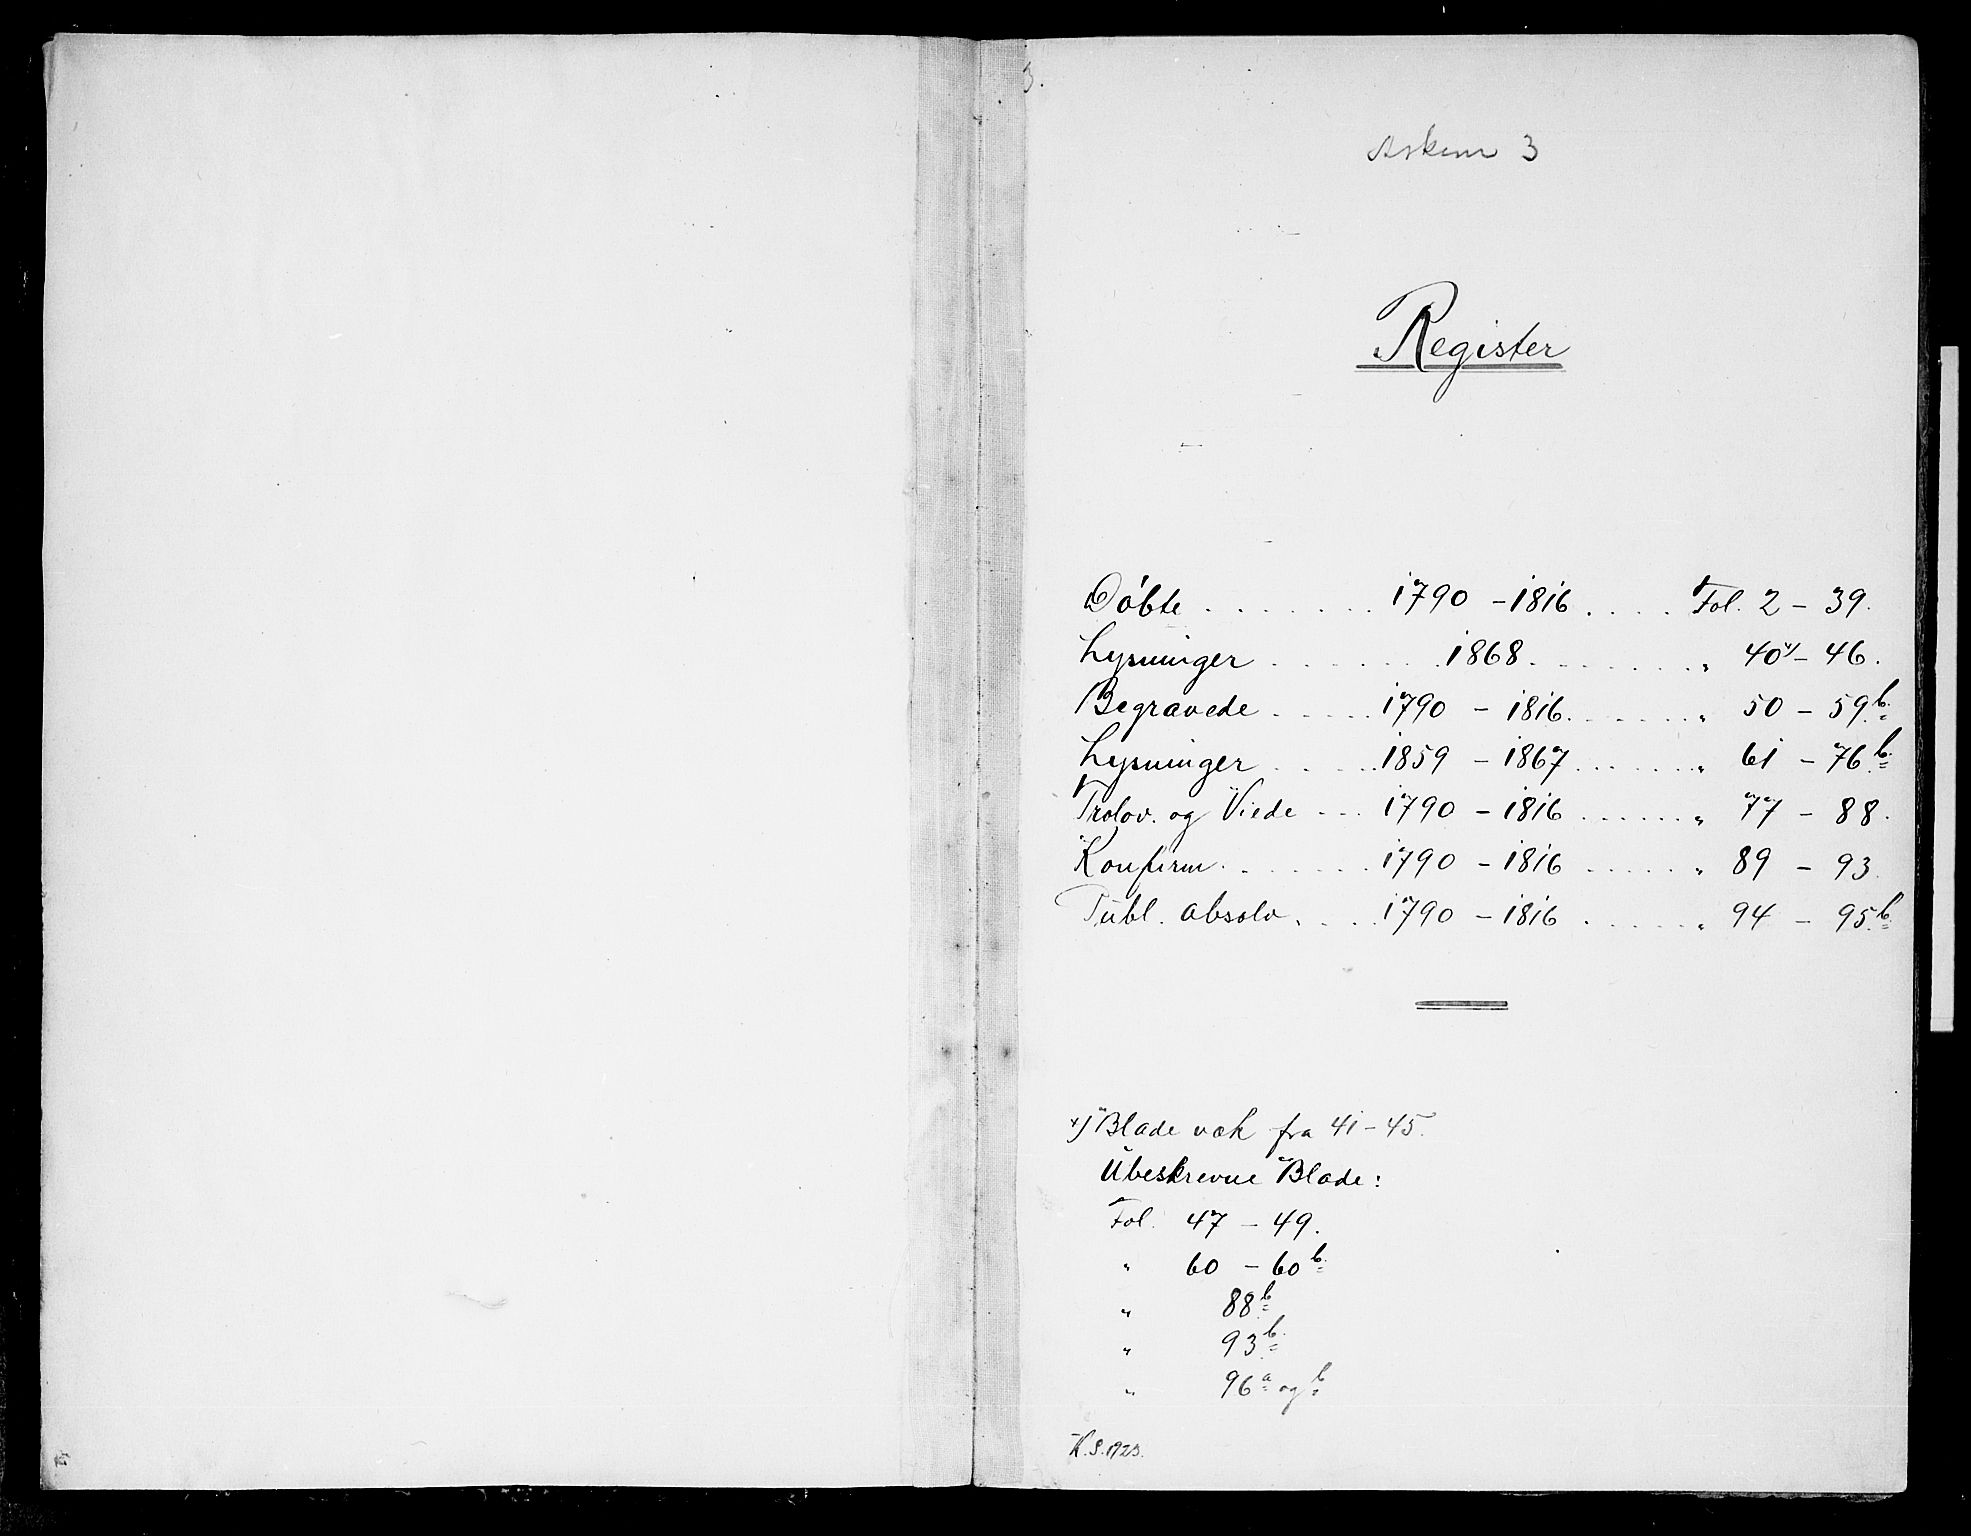 3.
Askim 3
Register
Döbte . . . . . . . 1790 - 1816 . . . . Fol. 2 - 39.
Lysninger . . . . . . . 1868. . . . . . . . " 40x) - 46.
Begravede . . . . . 1790 - 1816. . . . . . . " 50 - 59b.
Lysninger . . . . . 1859 - 1867 . . . . . . . " 61 - 76b.
Trolov. og Viede . . . 1790 - 1816 . . . . . . " 77 - 88.
Konfirm. . . . . . . . 1790 - 1816 . . . . . . " 89 - 93.
Publ. absolv. . . . . 1790 - 1816 . . . . . . " 94 - 95b.
x) Blade væk fra 41 - 45.
Ubeskrevne Blade:
Fol. 47 - 49.
" 60 - 60b.
" 88b.
" 93b.
" 96a og b
K.S. 1923.